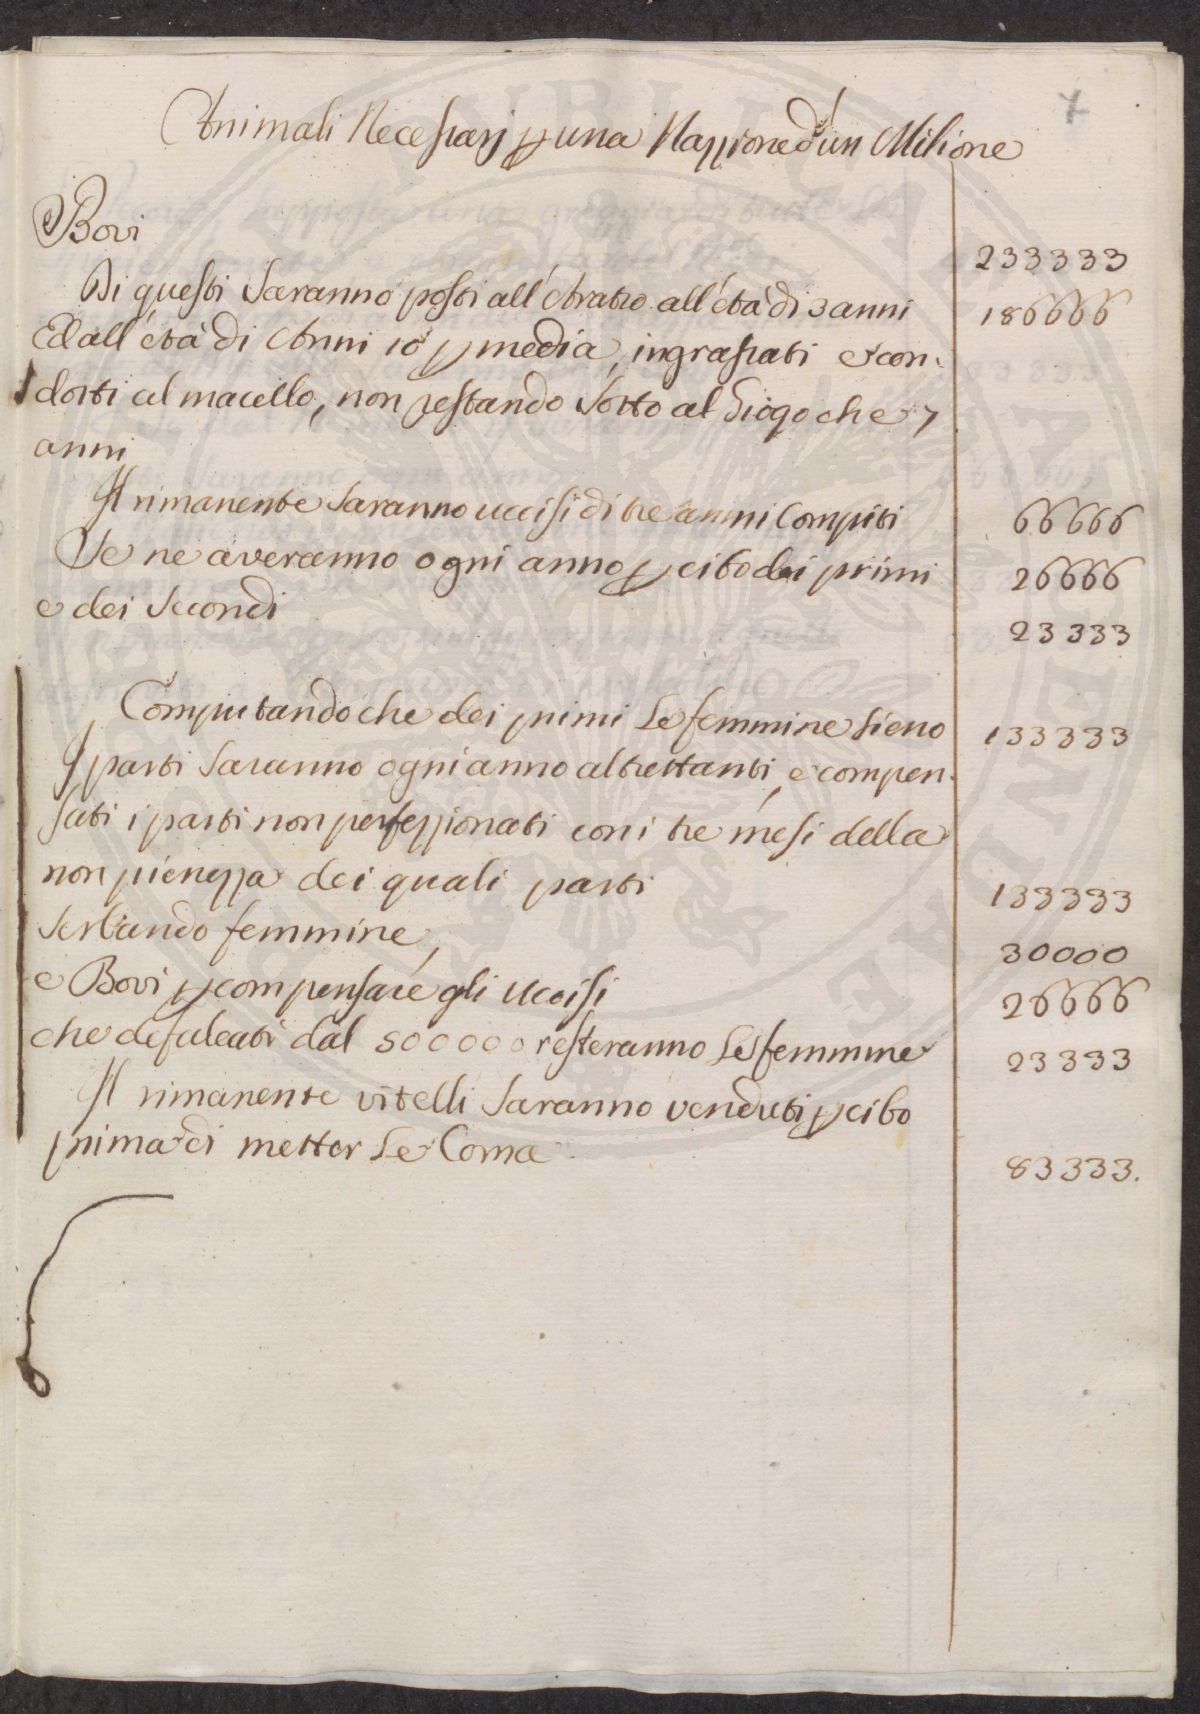 Animali Necessarj p una Nazzione d'un Milione
7
Bovi 233333
Di questi saranno posti all'Aratro all'età di 3 anni 186666
Ed all'età di Anni 10 p media, ingrassati e con-
dotti al macello, non restando sotto al Giogo che 7
anni
Il rimanente saranno uccisi di tre anni Compiti 66666
Se ne averanno ogni anno p cibo dei primi 26666
e dei secondi 23333
Computando che dei primi Le femmine sieno 133333
I parti saranno ogni anno altrettanti, e compen-
sati i parti non perfezzionati con i tre mesi della
non pienezza dei quali parti 133333
Serbando femmine, 30000
e Bovi p compensare gli uccisi 26666
che defalcati dal 50000 resteranno Le femmine 23333
Il rimanente vitelli saranno venduti p cibo
prima di metter Le Corna 83333.